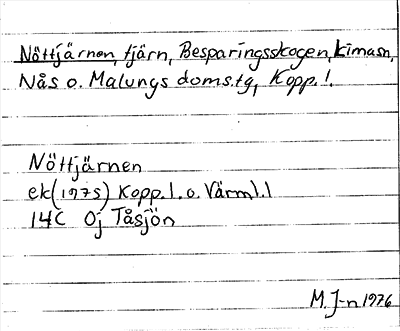 Nöttjärnen, tjärn, Besparingsskogen, Lima sn,
Nås o. Malungs doms.tg, Kopp. l.
Nöttjärnen
ek (1975) Kopp. l. o. Värml. l
14C Oj Tåsjön
M. J-n 1976